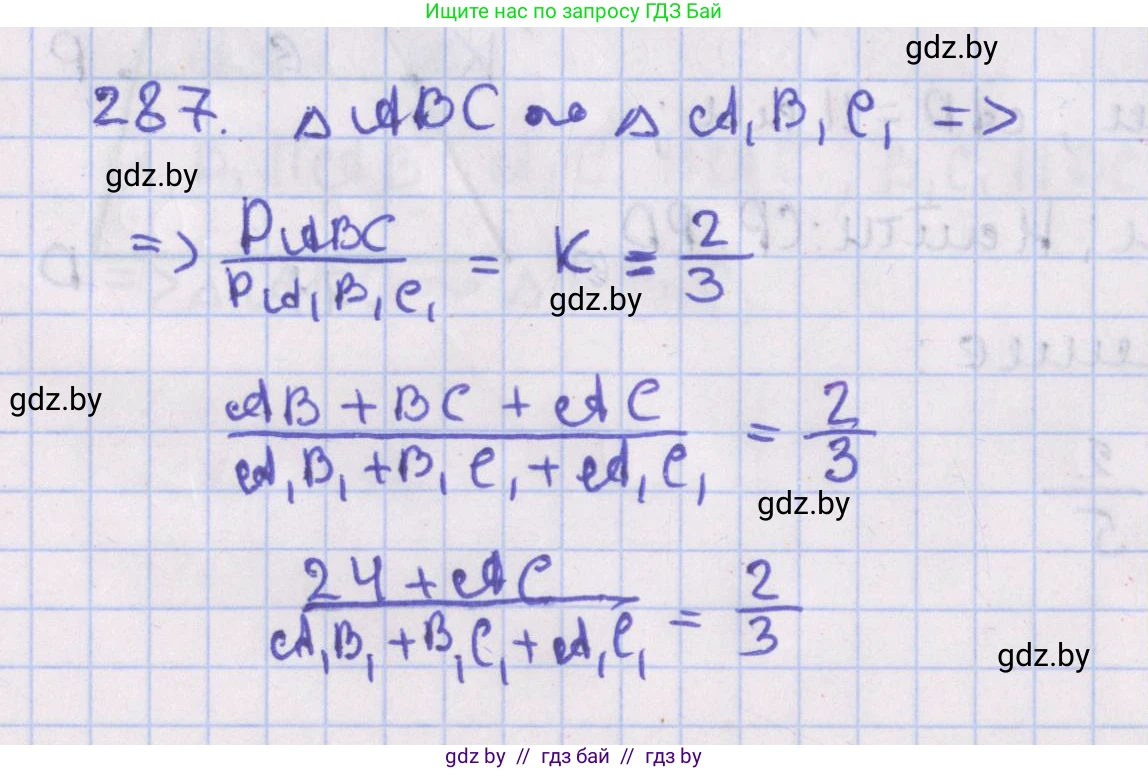 Ищите нас по запросу ГДЗ Бай
gdz.by
287. △ ABC ∾ △ A₁B₁C₁ =>
gdz.by
=> P ABC / P A₁B₁C₁ = K = 2/3
gdz.by
gdz.by
AB + BC + AC / A₁B₁ + B₁C₁ + A₁C₁ = 2/3
gdz.by
24 + AC / A₁B₁ + B₁C₁ + A₁C₁ = 2/3
gdz.by
gdz.by // гдз бай // gdz.by